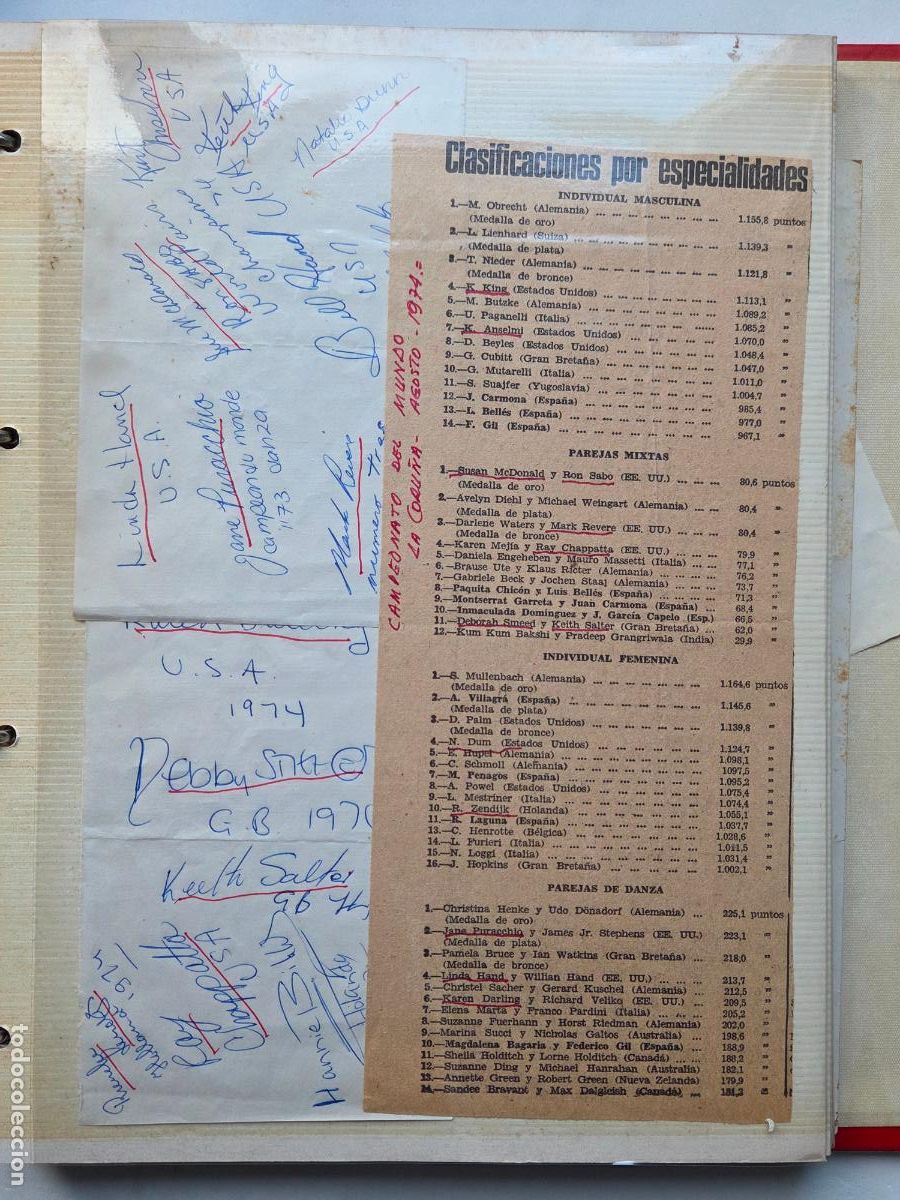 Kurt
Anselmi
USA
Keith King
USA
Natalie Dunn
U.S.A
Ron Sabo
World Champions 74
USA
Bill Hand
USA
Linda Hand
U.S.A.
Jana Puracchio
Campeon du monde
1973 danza
Mark Revere
numero Tres
U.S.A.
1974
Debby
G.B 197
Keith Salter
Ray
Chappatta
USA
Hannie
Holanda
1974
CAMPEONATO DEL MUNDO
LA CORUÑA - AGOSTO - 1974.=
Clasificaciones por especialidades
INDIVIDUAL MASCULINA
1.—M. Obrecht (Alemania) ... 1.155,8 puntos
(Medalla de oro)
2.—L. Lienhard (Suiza) ... 1.139,3 »
(Medalla de plata)
3.—T. Nieder (Alemania) ... 1.121,8 »
(Medalla de bronce)
4.—K. King (Estados Unidos) ... 1.113,1 »
5.—M. Butzke (Alemania) ... 1.089,2 »
6.—U. Paganelli (Italia) ... 1.085,2 »
7.—K. Anselmi (Estados Unidos) ... 1.070,0 »
8.—D. Beyles (Estados Unidos) ... 1.048,4 »
9.—G. Cubitt (Gran Bretaña) ... 1.047,0 »
10.—G. Mutarelli (Italia) ... 1.011,0 »
11.—S. Suajfer (Yugoslavia) ... 1.004,7 »
12.—J. Carmona (España) ... 985,4 »
13.—L. Bellés (España) ... 977,0 »
14.—F. Gil (España) ... 967,1 »
PAREJAS MIXTAS
1.—Susan McDonald y Ron Sabo (EE. UU.) ... 80,6 puntos
(Medalla de oro)
2.—Avelyn Diehl y Michael Weingart (Alemania) 80,4 »
(Medalla de plata)
3.—Darlene Waters y Mark Revere (EE. UU.) ... 80,4 »
(Medalla de bronce)
4.—Karen Mejía y Ray Chappatta (EE. UU.) ... 79,9 »
5.—Daniela Engeheben y Mauro Massetti (Italia) ... 77,1 »
6.—Brause Ute y Klaus Ricter (Alemania) ... 76,2 »
7.—Gabriele Beck y Jochen Staaj (Alemania) ... 73,7 »
8.—Paquita Chicón y Luis Bellés (España) ... 71,3 »
9.—Montserrat Garreta y Juan Carmona (España) ... 68,4 »
10.—Inmaculada Domínguez y J. García Capelo (Esp.) 66,5 »
11.—Deborah Smeed y Keith Salter (Gran Bretaña) ... 62,0 »
12.—Kum Kum Bakshi y Pradeep Grangriwala (India) 29,9 »
INDIVIDUAL FEMENINA
1.—S. Mullenbach (Alemania) ... 1.164,6 puntos
(Medalla de oro)
2.—A. Villagrá (España) ... 1.145,6 »
(Medalla de plata)
3.—D. Palm (Estados Unidos) ... 1.139,8 »
(Medalla de bronce)
4.—N. Dum (Estados Unidos) ... 1.124,7 »
5.—E. Hupel (Alemania) ... 1.098,1 »
6.—C. Schmoll (Alemania) ... 1097,5 »
7.—M. Penagos (España) ... 1.095,2 »
8.—A. Powel (Estados Unidos) ... 1.075,4 »
9.—L. Mestriner (Italia) ... 1.074,4 »
10.—R. Zendijk (Holanda) ... 1.055,1 »
11.—R. Laguna (España) ... 1.037,7 »
13.—C. Henrotte (Bélgica) ... 1.028,6 »
14.—L. Furieri (Italia) ... 1.011,5 »
15.—N. Loggi (Italia) ... 1.031,4 »
16.—J. Hopkins (Gran Bretaña) ... 1.002,1 »
PAREJAS DE DANZA
1.—Christina Henke y Udo Dönadorf (Alemania) ... 225,1 puntos
(Medalla de oro)
2.—Jana Puracchio y James Jr. Stephens (EE. UU.) 223,1 »
(Medalla de plata)
3.—Pamela Bruce y Ian Watkins (Gran Bretaña) ... 218,0 »
(Medalla de bronce)
4.—Linda Hand y Willian Hand (EE. UU.) ... 213,7 »
5.—Christel Sacher y Gerard Kuschel (Alemania) 212,5 »
6.—Karen Darling y Richard Veliko (EE. UU.) ... 209,5 »
7.—Elena Marta y Franco Pardini (Italia) ... 205,2 »
8.—Suzanne Fuerhann y Horst Riedman (Alemania) 202,0 »
9.—Marina Succi y Nicholas Galtos (Australia) ... 198,6 »
10.—Magdalena Bagaria y Federico Gil (España) ... 188,9 »
11.—Sheila Holditch y Lorne Holditch (Canadá) ... 188,2 »
12.—Suzanne Ding y Michael Hanrahan (Australia) 182,1 »
13.—Annette Green y Robert Green (Nueva Zelanda) 179,9 »
14.—Sandee Bravant y Max Dalgleish (Canadá) ... 151,2 »
todocoleccion